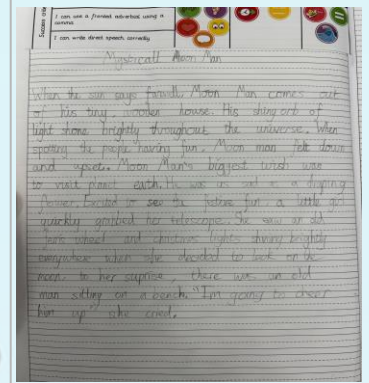 Success
I can use a fronted adverbial using a comma
I can write direct speech correctly
Mystricall Moon Man
When the sun says farwell, Moon Man comes out
of his tiny, wooden house. His shing orb of
light shone brightly throughout the universe. When
spotting the people having fun, Moon man felt down
and upset. Moon Man's biggest wish was
to visit planet earth. He was as sad as a
flower. Excited to see the festive fun, a little girl
quickly grabbed her telescope. She saw an old
wheel and christmas lights shining brightly
everywhere when she decided to look on the
moon. to her suprise, there was an old
man sitting on a bench. "Im going to cheer
him up" she cried.